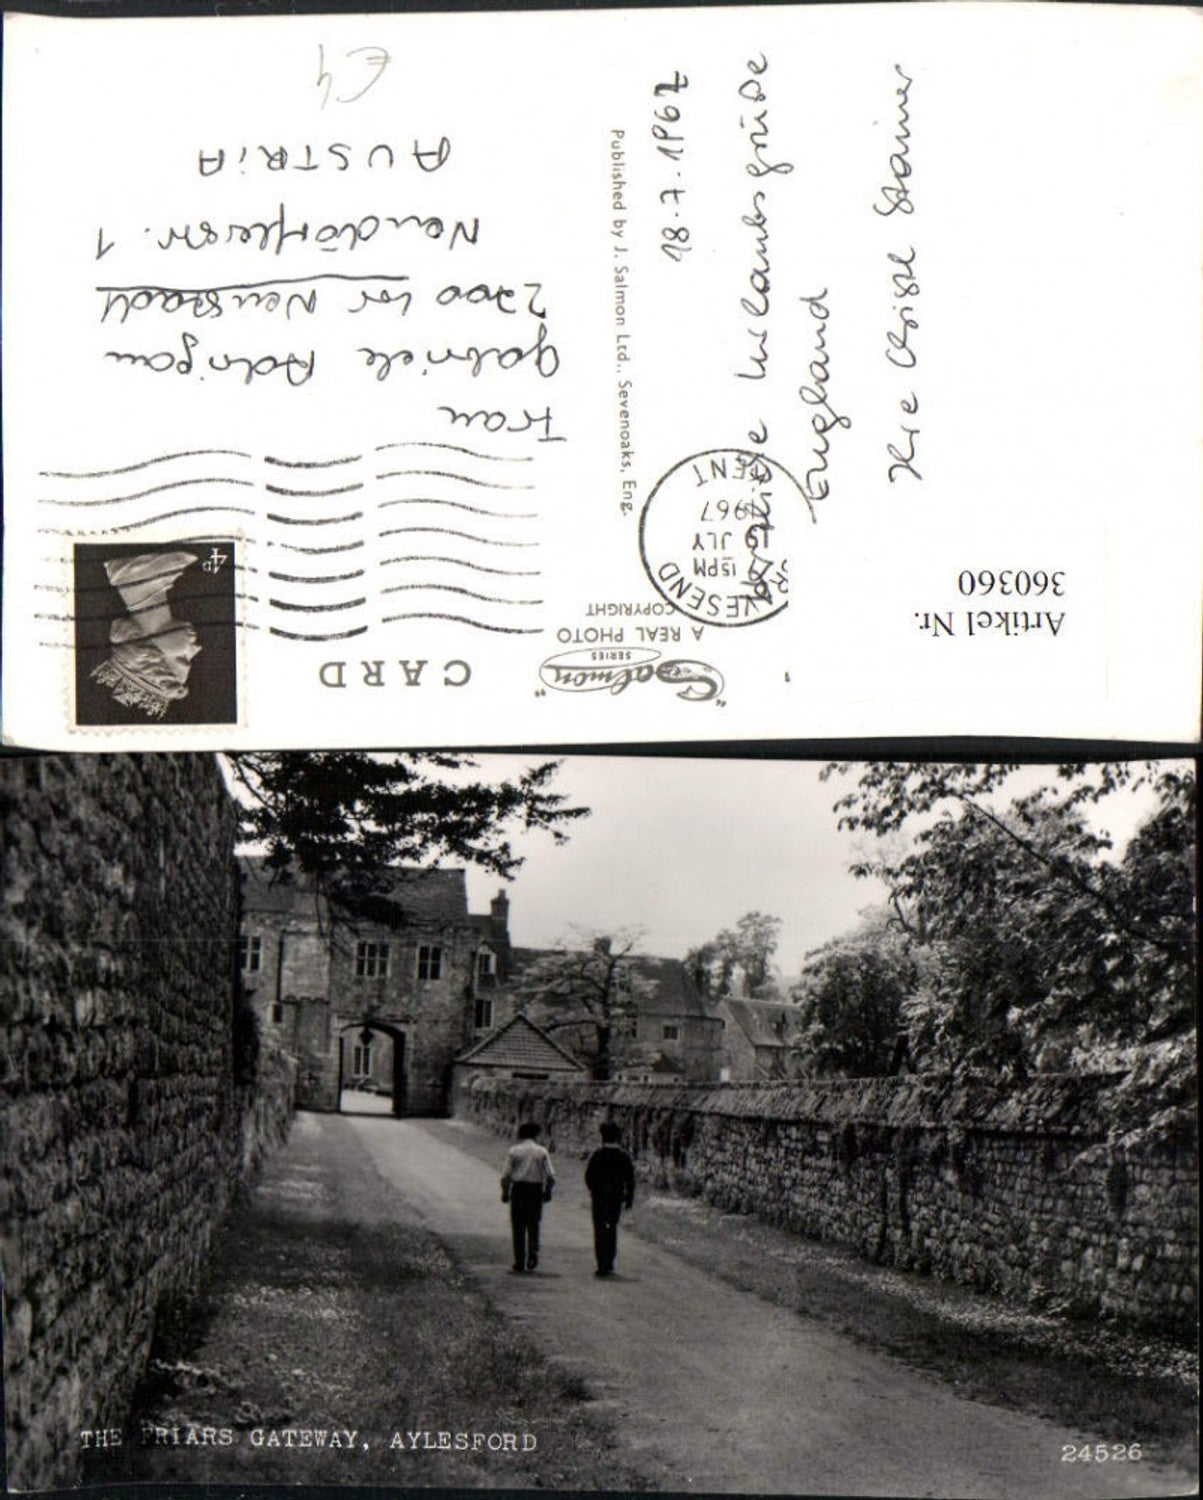 Artikel Nr.
360360
CARD
"Salmon
SERIES
"
A REAL PHOTO
COPYRIGHT
VESEND
15PM
JLY
1967
KENT
4D
Published by J. Salmon Ltd., Sevenoaks, Eng.
18.7.1967
Herzliche Urlaubsgrüße
England
Ihre
Frau
Gabriele
2700 Wr Neustadt
Neudörflerstr. 1
AUSTRiA
€4
THE FRIARS GATEWAY, AYLESFORD
24526